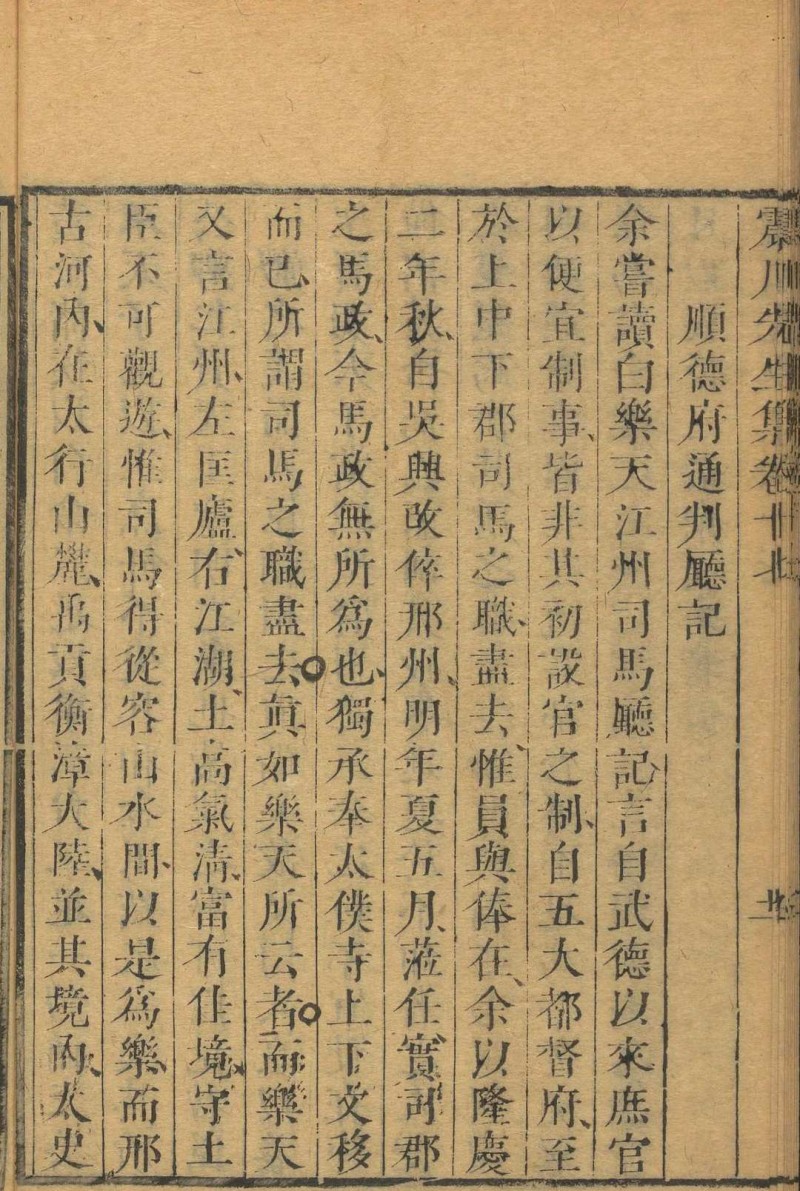 震川先生集卷十七
順德府通判廳記
余嘗讀白樂天江州司馬廳記言自武德以來庶官
以便宜制事、皆非其初設官之制、自五大都督府、至
於上中下郡司馬之職、盡去、惟員與俸在、余以隆慶
二年秋、自吳興改倅邢州、明年夏五月、蒞任實司郡
之馬政、今馬政無所爲也、獨承奉太僕寺上下文移
而已、所謂司馬之職盡去、真如樂天所云者、而樂天
又言江州、左匡廬、右江湖、土高氣清、富有佳境、守土
臣不可觀遊、惟司馬得從容山水間、以是爲樂、而邢
古河內、在太行山麓、禹貢衡漳大陸、並其境內、太史